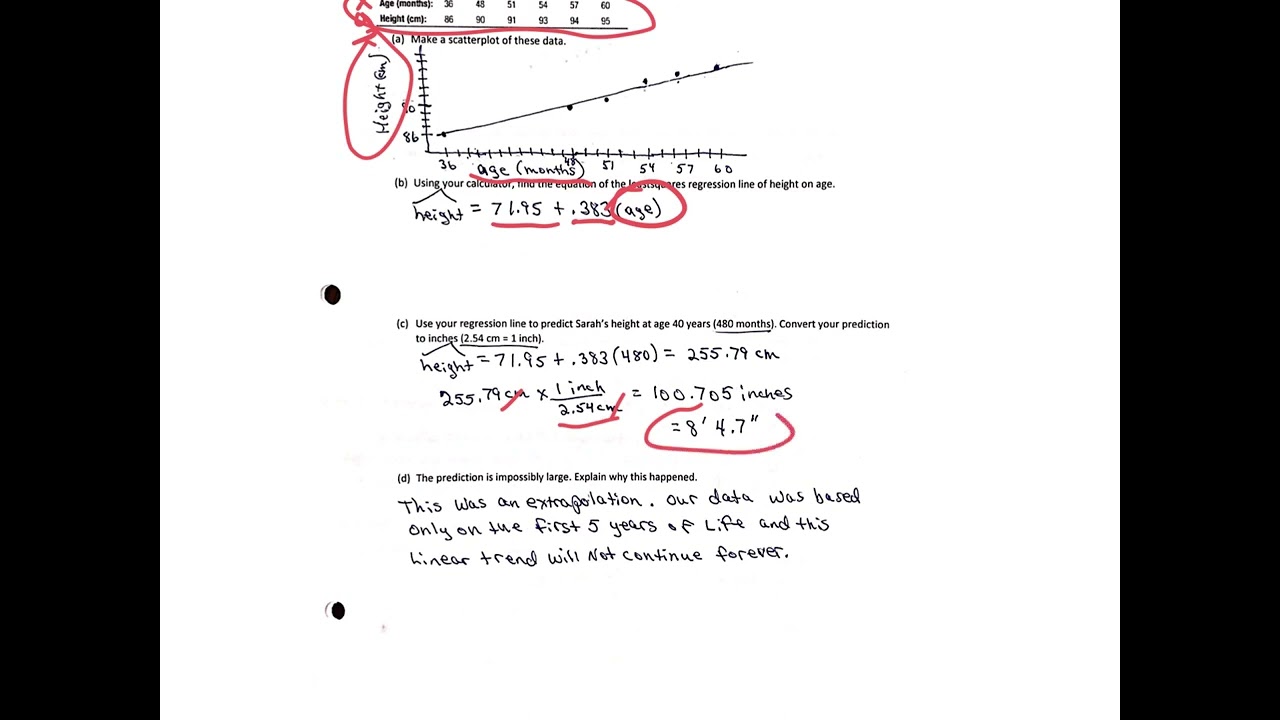 Age (months): 36 48 51 54 57 60
Height (cm): 86 90 91 93 94 95
(a) Make a scatterplot of these data.
Height (cm)
90
86
36 48 51 54 57 60
age (months)
(b) Using your calculator, find the equation of the leastsquares regression line of height on age.
height = 71.95 + .383 (age)
(c) Use your regression line to predict Sarah's height at age 40 years (480 months). Convert your prediction
to inches (2.54 cm = 1 inch).
height = 71.95 + .383 (480) = 255.79 cm
255.79 cm x 1 inch / 2.54 cm = 100.705 inches
= 8' 4.7"
(d) The prediction is impossibly large. Explain why this happened.
This was an extrapolation. Our data was based
only on the first 5 years of Life and this
Linear trend will Not continue forever.